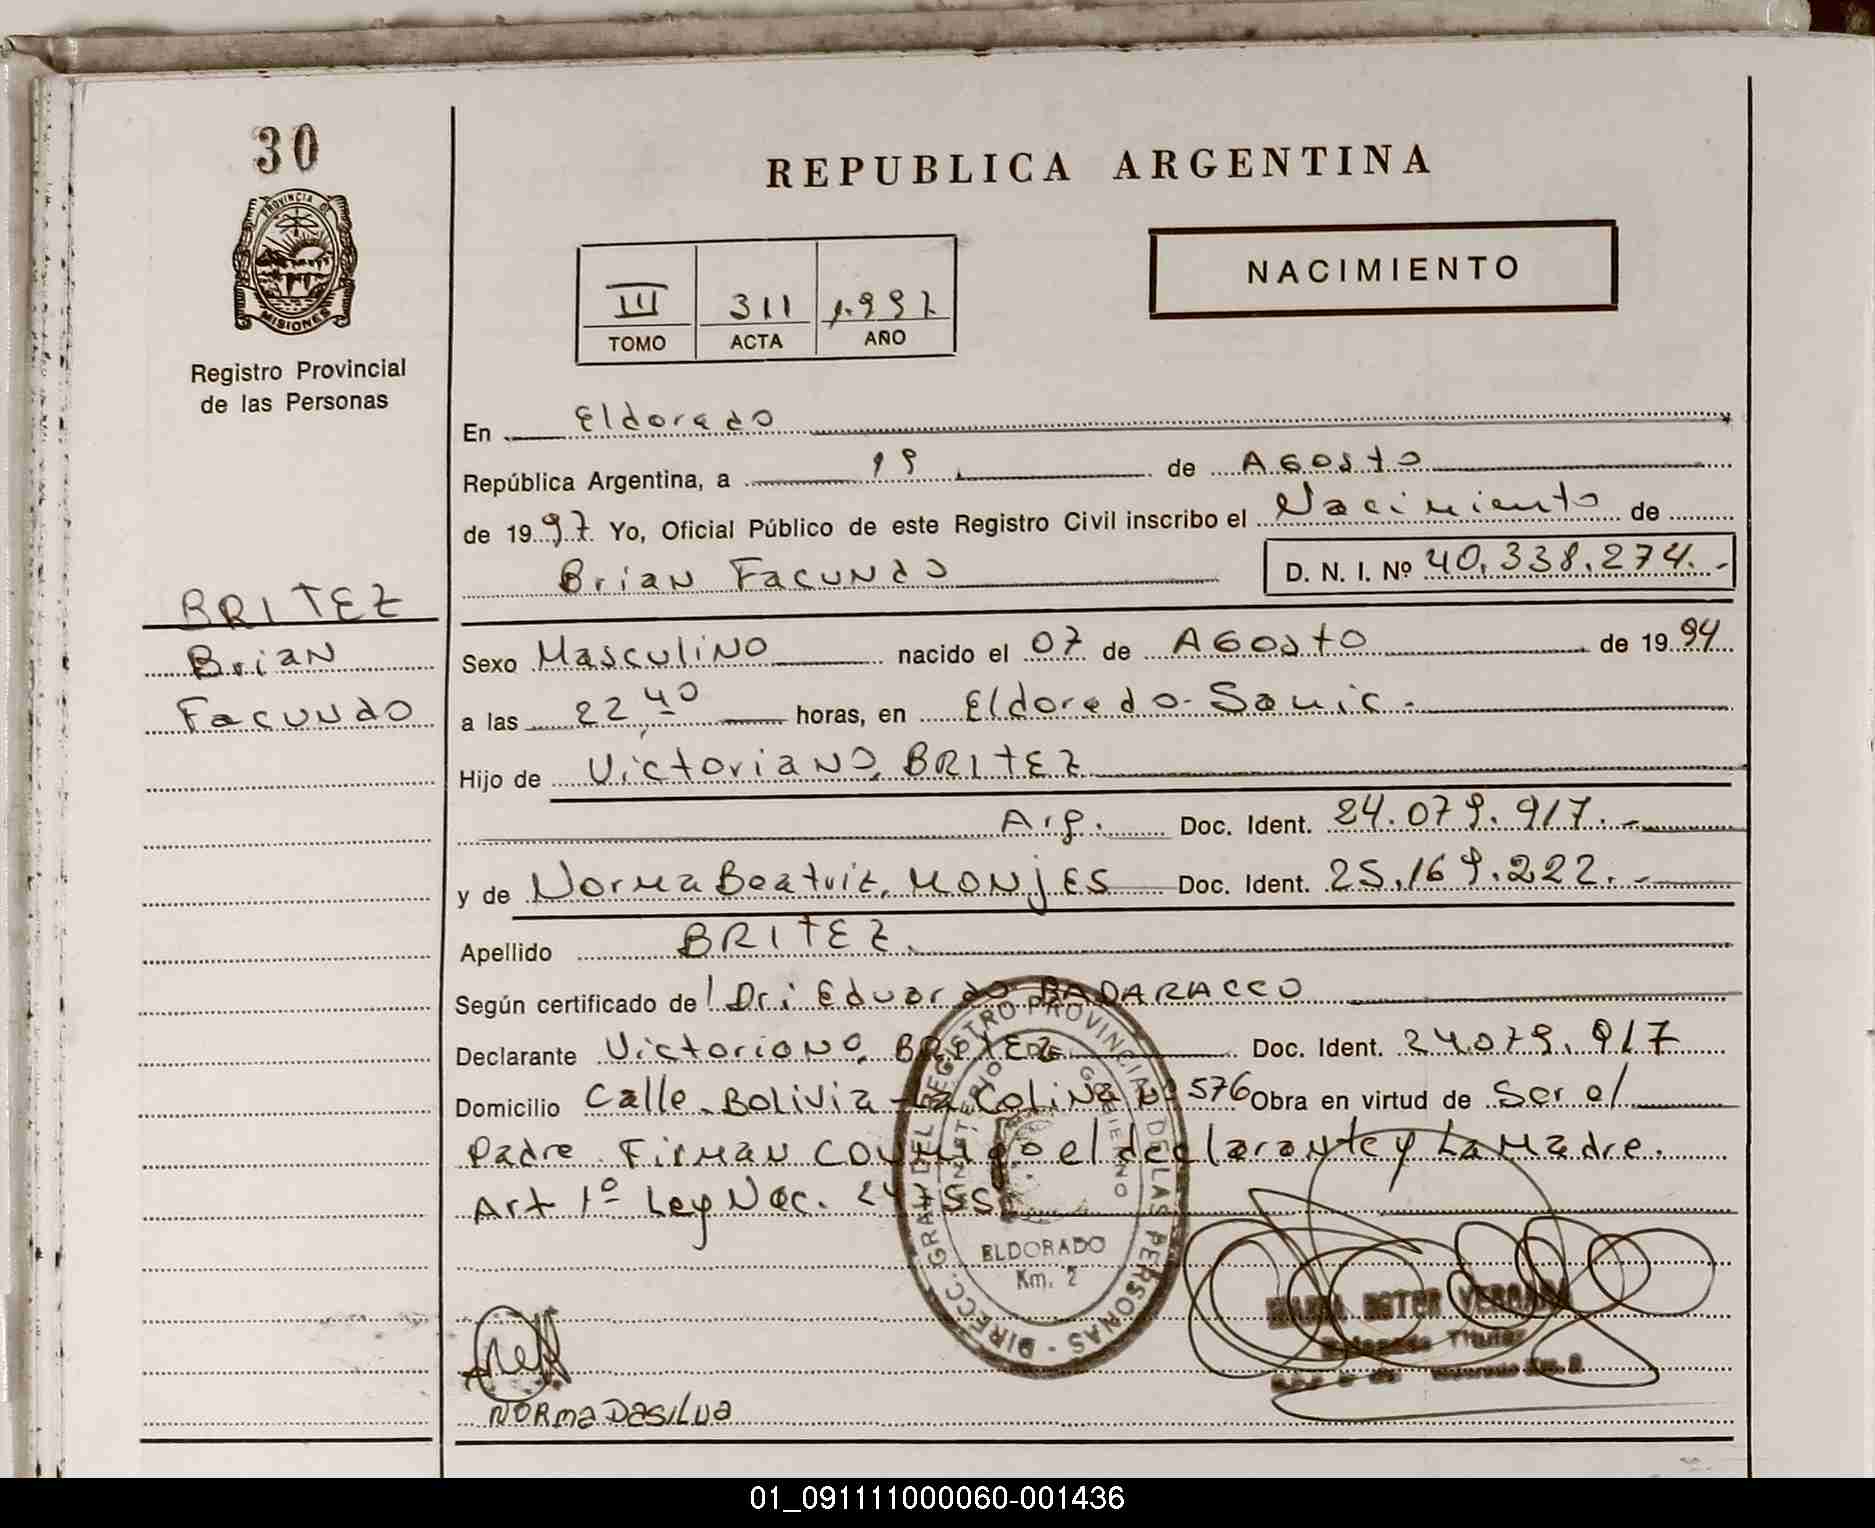 30
PROVINCIA DE
MISIONES
Registro Provincial
de las Personas
REPUBLICA ARGENTINA
NACIMIENTO
III 311 1.997
TOMO ACTA AÑO
En Eldorado
República Argentina, a 19 de Agosto
de 1997 Yo, Oficial Público de este Registro Civil inscribo el Nacimiento de
Brian Facundo D. N. I. Nº 40.338.274.-
BRITEZ
Brian
Facundo
Sexo Masculino nacido el 07 de Agosto de 1994
a las 22,40 horas, en Eldorado-Samic.
Hijo de Victoriano, BRITEZ
Arg. Doc. Ident. 24.079.917.-
y de Norma Beatriz, MONJES Doc. Ident. 25.169.222.-
Apellido BRITEZ
Según certificado de Dr: Eduardo BADARACCO
Declarante Victoriano, BRITEZ Doc. Ident. 24.079.917
Domicilio Calle Bolivia-La Colina Nº 576 Obra en virtud de Ser el
Padre. Firman conmigo el declarante y La Madre.
Art 1º Ley Nac.
DIRECC. GRAL. DEL REGISTRO PROVINCIAL DE LAS PERSONAS
MINISTERIO DE GOBIERNO
ELDORADO
Km. 2
Titular
NORMA DASILVA
01_091111000060-001436